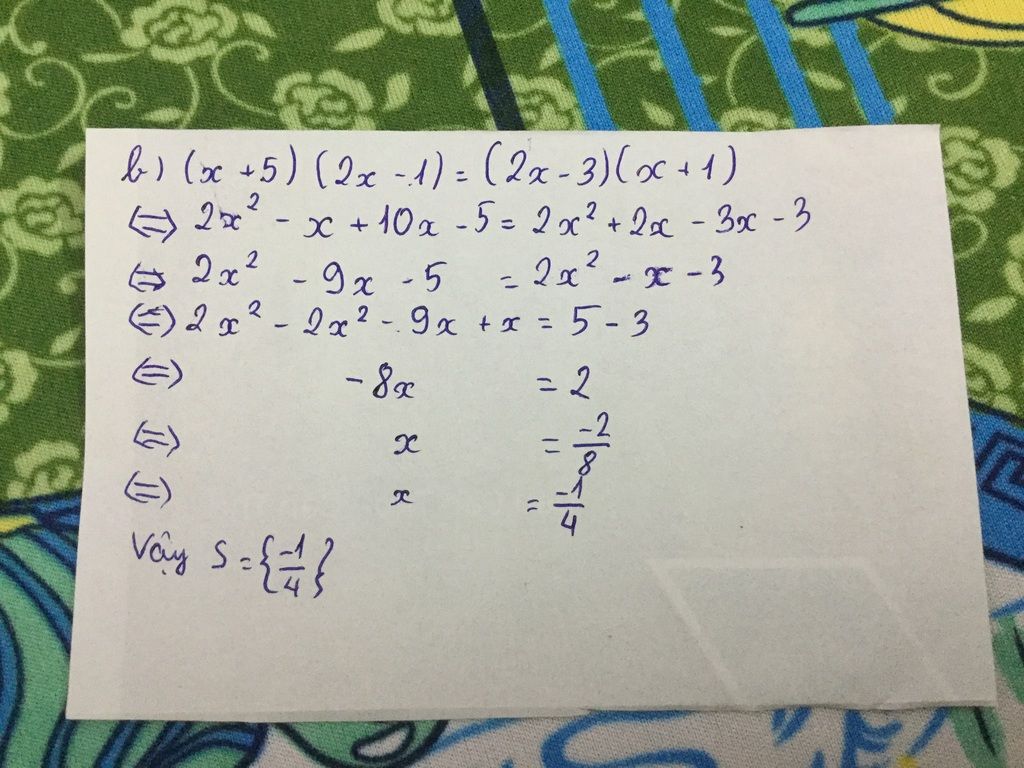 b) (x + 5) (2x - 1) = (2x - 3)(x + 1)
⇔ 2x² - x + 10x - 5 = 2x² + 2x - 3x - 3
⇔ 2x² - 9x - 5 = 2x² - x - 3
⇔ 2x² - 2x² - 9x + x = 5 - 3
⇔ - 8x = 2
⇔ x = -2/8
⇔ x = -1/4
Vậy S = {-1/4}